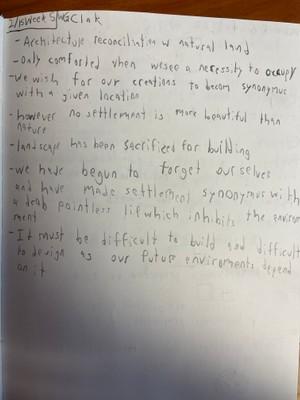 2/15 Week 5/ WG Clak
- Architecture reconciliation w natural land
- Only comforted when we see a necessity to occupy
- We wish for our creations to becom synonymus
with a given location
- however no settlement is more beautiful than
nature
- landscape has been sacrificed for building
- we have begun to forget our selves
and have made settlement synonymus with
a drab pointless lif which inhibits the enviorn
ment
- It must be difficult to build and difficult
to design as our future enviroments depend
on it